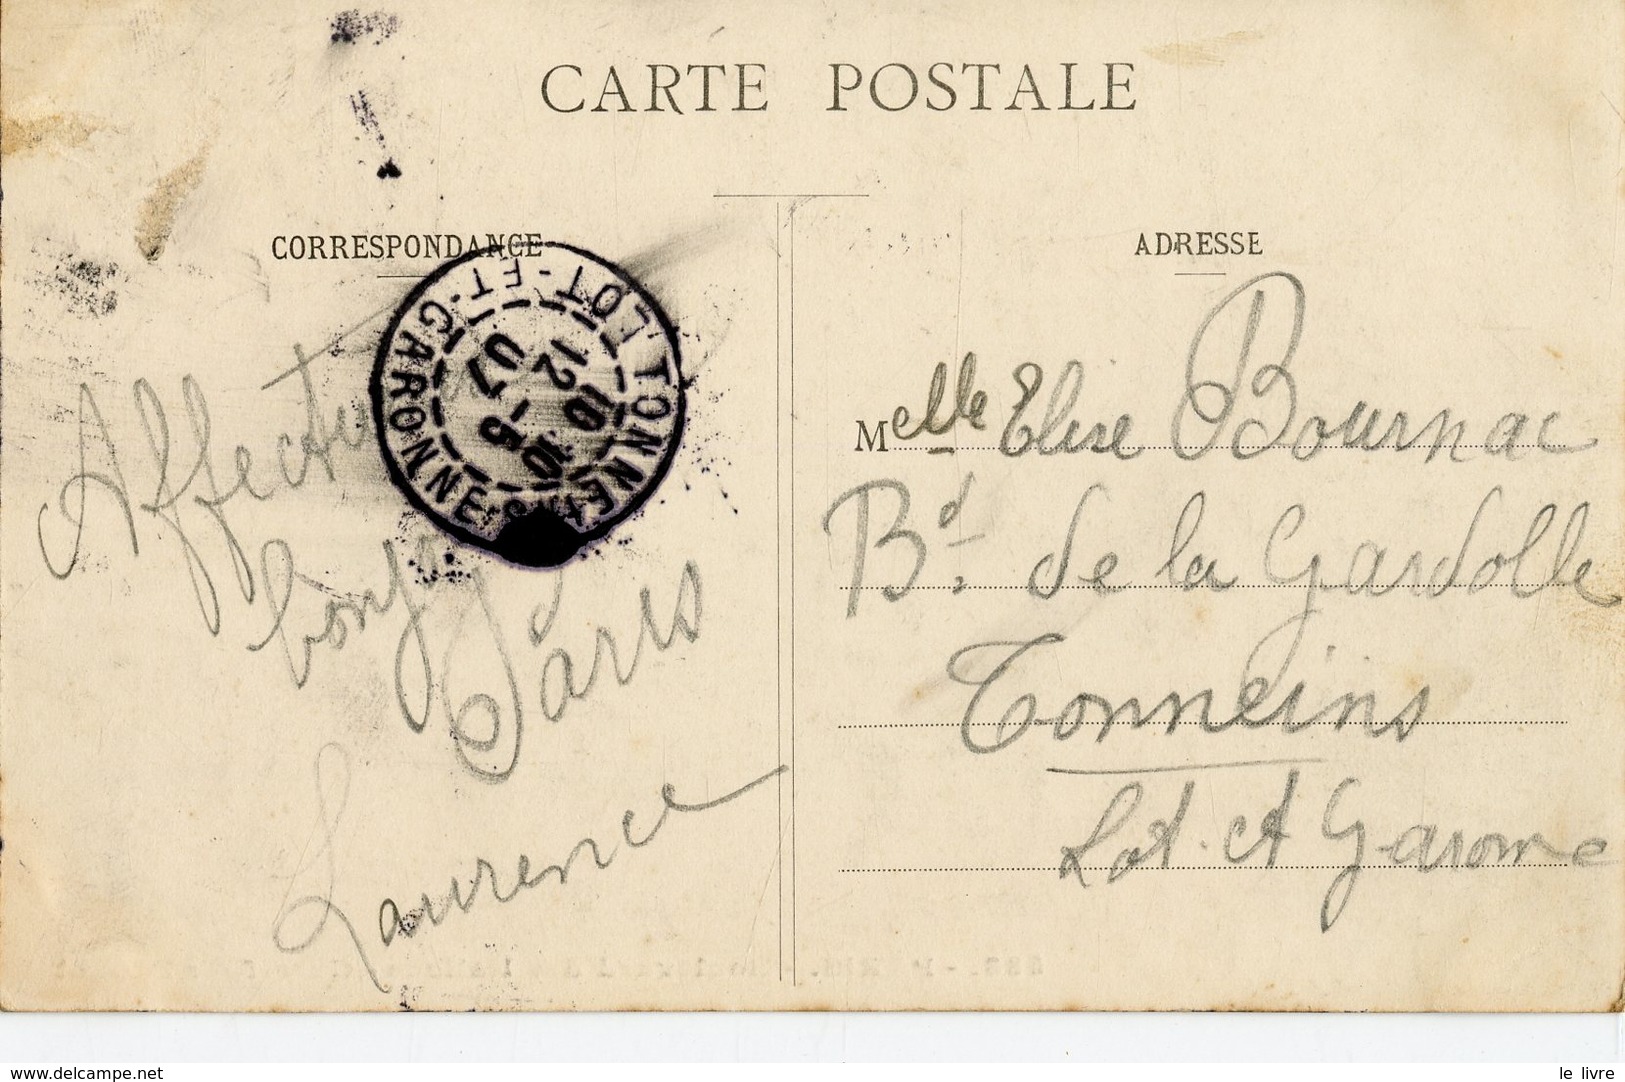 CARTE POSTALE
CORRESPONDANCE
ADRESSE
TONNEINS
LOT-ET-GARONNE
12
5-10
07
Affectu
bonjo
Paris
Laurence
Melle Elise Bournac
Bd. de la Gardolle
Tonneins
Lot. et Garonne
www.delcampe.net
le livre